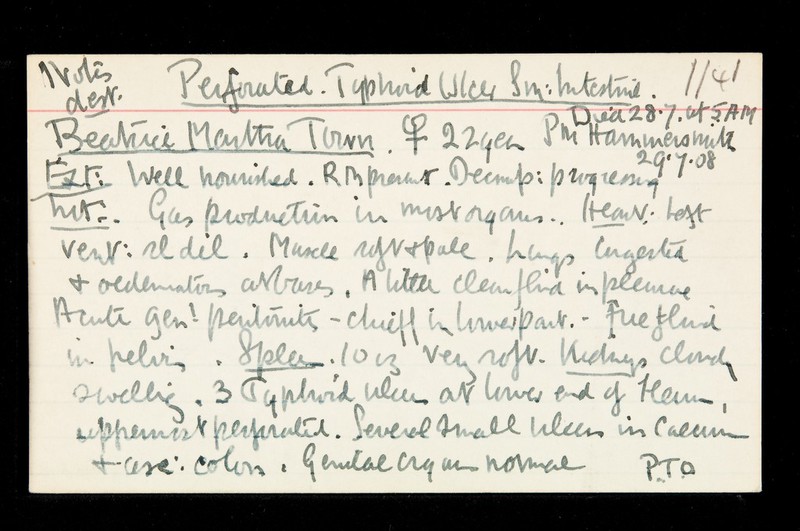 Notes dest.
Perforated. Typhoid Ulcer Sm: Intestine. 1/41
Died 28.7. at 5 AM
Beatrice Martha Town. ♀ 22 years PM Hammersmith
29.7.08
Ext: Well nourished. R M present. Decomp: progressing
Int:. Gas production in most organs.. Heart: Left
vent: sl dil. Muscle soft & pale. Lungs congested
& oedematous at bases. A little clear fluid in pleurae
Acute gen'l peritonitis - chiefly in lower part. - Free fluid
in pelvis. Spleen. 10 oz very soft. Kidneys cloudy
swelling. 3 Typhoid ulcers at lower end of Ileum,
uppermost perforated. Several small ulcers in Caecum
& asc: colon. Genital organs normal
P.T.O